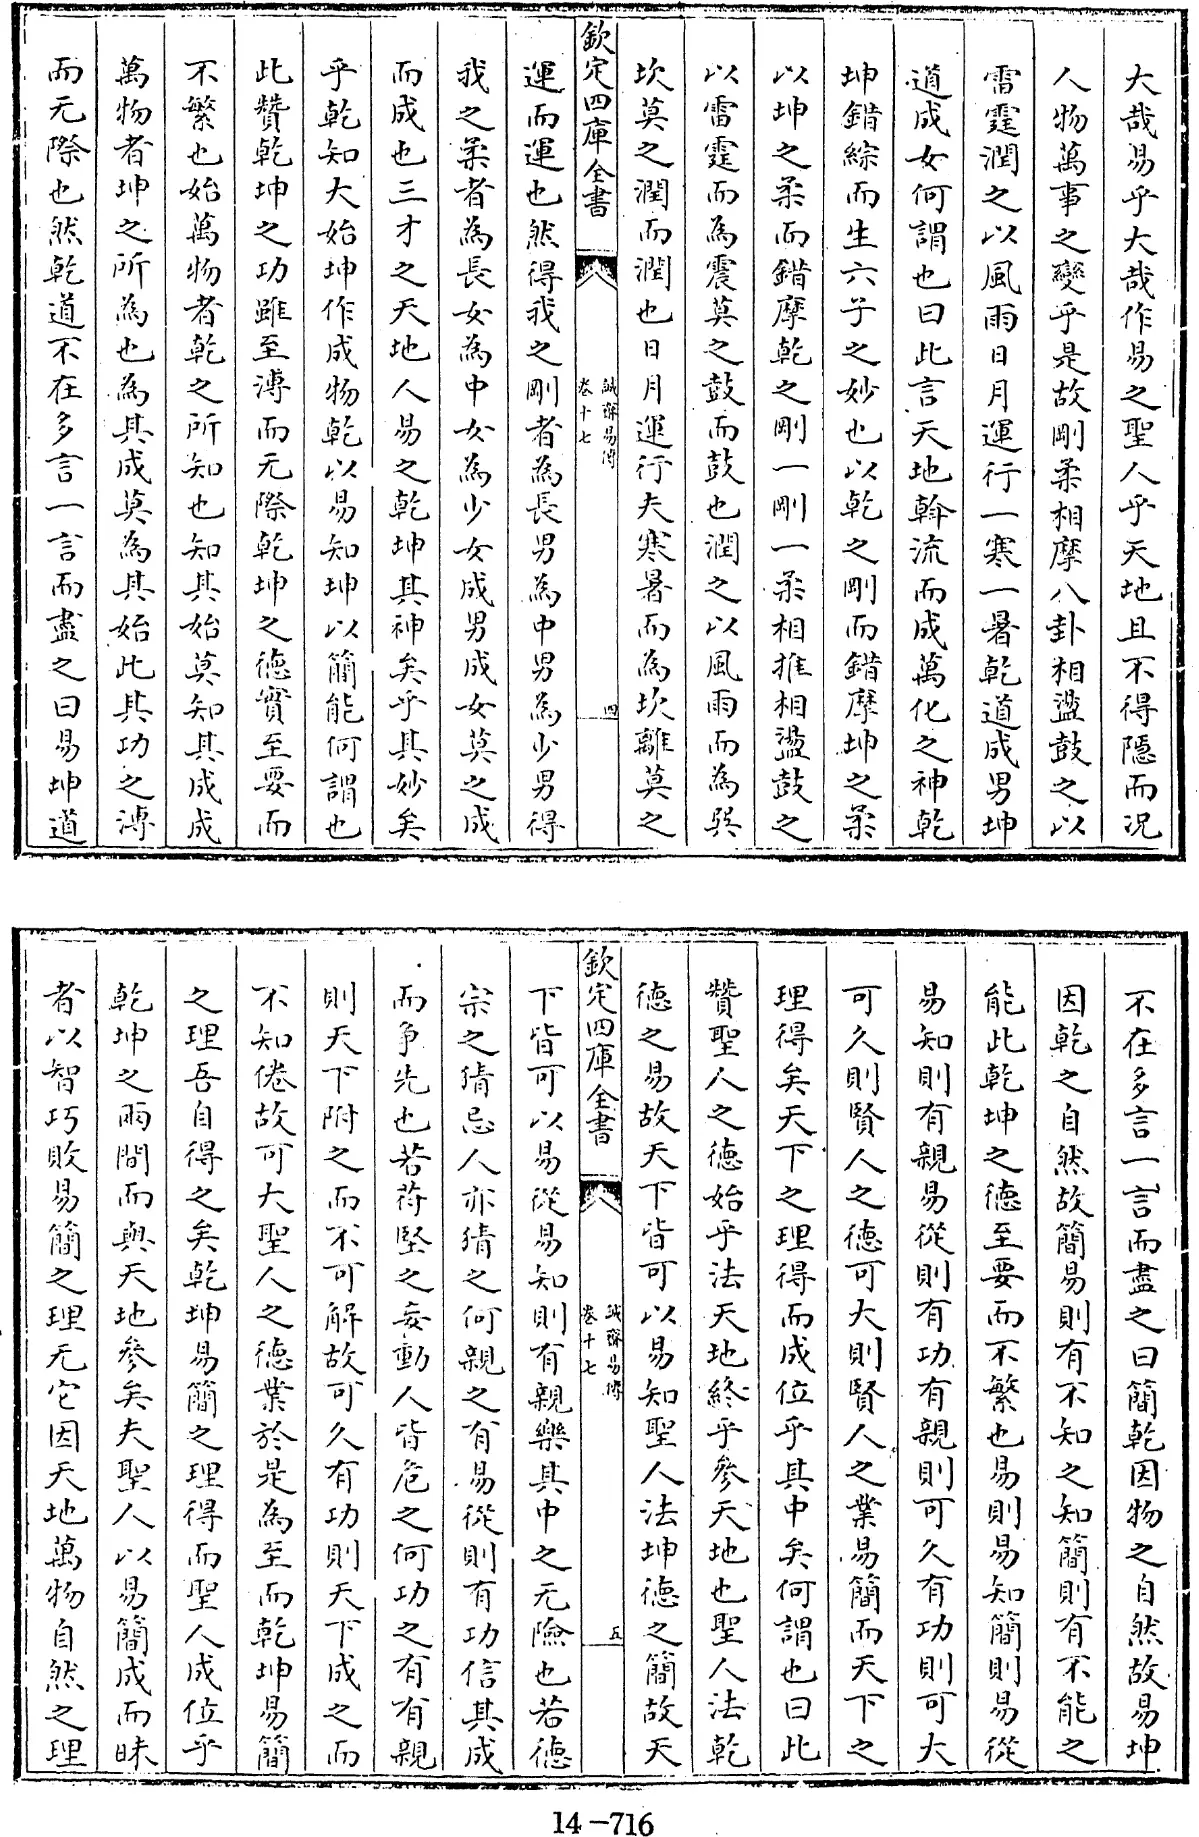 大哉易乎大哉作易之聖人乎天地且不得隱而況
人物萬事之變乎是故剛柔相摩八卦相盪鼓之以
雷霆潤之以風雨日月運行一寒一暑乾道成男坤
道成女何謂也曰此言天地斡流而成萬化之神乾
坤錯綜而生六子之妙也以乾之剛而錯摩坤之柔
以坤之柔而錯摩乾之剛一剛一柔相推相盪鼓之
以雷霆而為震莫之鼓而鼓也潤之以風雨而為巽
坎莫之潤而潤也日月運行夫寒暑而為坎離莫之
欽定四庫全書
誠齋易傳
卷十七
四
運而運也然得我之剛者為長男為中男為少男得
我之柔者為長女為中女為少女成男成女莫之成
而成也三才之天地人易之乾坤其神矣乎其妙矣
乎乾知大始坤作成物乾以易知坤以簡能何謂也
此贊乾坤之功雖至溥而无際乾坤之德實至要而
不繁也始萬物者乾之所知也知其始莫知其成成
萬物者坤之所為也為其成莫為其始此其功之溥
而无際也然乾道不在多言一言而盡之曰易坤道
不在多言一言而盡之曰簡乾因物之自然故易坤
因乾之自然故簡易則有不知之知簡則有不能之
能此乾坤之德至要而不繁也易則易知簡則易從
易知則有親易從則有功有親則可久有功則可大
可久則賢人之德可大則賢人之業易簡而天下之
理得矣天下之理得而成位乎其中矣何謂也曰此
贊聖人之德始乎法天地終乎參天地也聖人法乾
德之易故天下皆可以易知聖人法坤德之簡故天
欽定四庫全書
誠齋易傳
卷十七
五
下皆可以易從易知則有親樂其中之无險也若德
宗之猜忌人亦猜之何親之有易從則有功信其成
而爭先也若苻堅之妄動人皆危之何功之有有親
則天下附之而不可解故可久有功則天下成之而
不知倦故可大聖人之德業於是為至而乾坤易簡
之理吾自得之矣乾坤易簡之理得而聖人成位乎
乾坤之兩間而與天地參矣夫聖人以易簡成而昧
者以智巧敗易簡之理无它因天地萬物自然之理
14-716